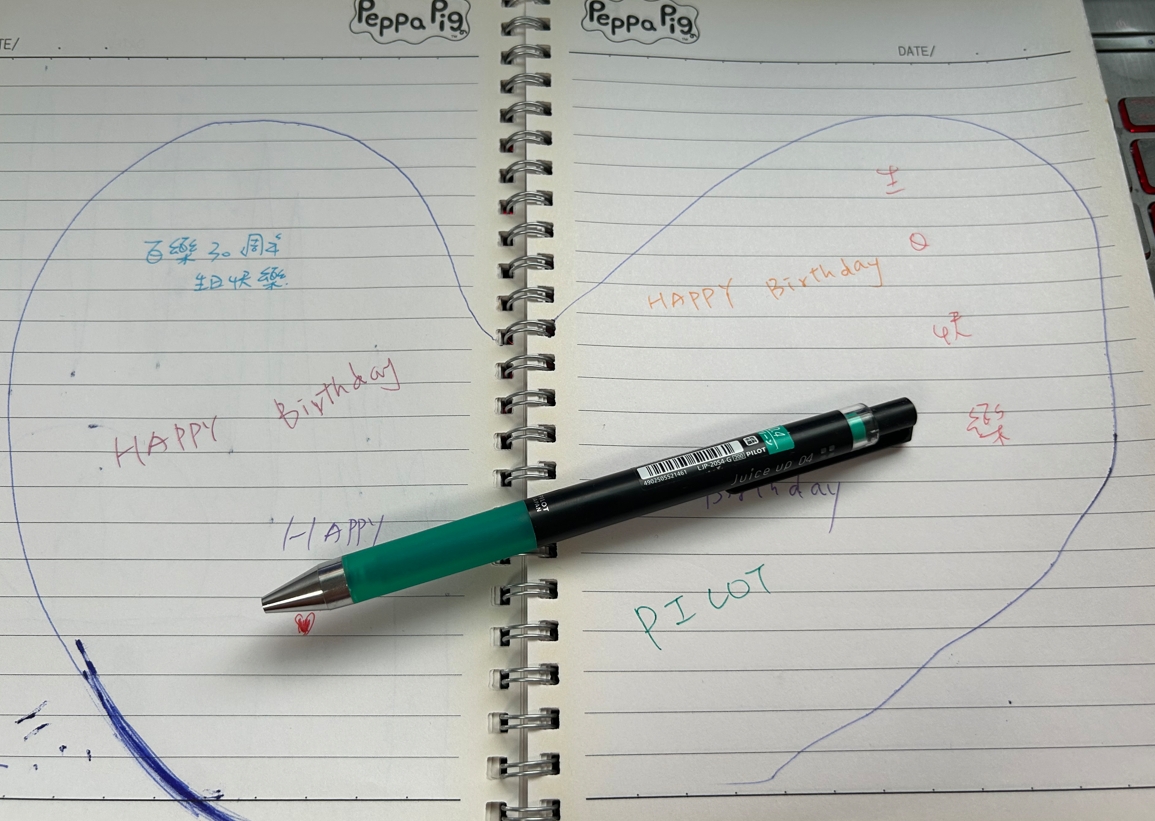 Peppa Pig
Peppa Pig
DATE/
百樂 30 周年
生日快樂
HAPPY Birthday
HAPPY Birthday
生
日
快
樂
HAPPY
Birthday
PILOT
0.4
PILOT
LJP-20S4-G
4902505521461
Juice up 04
PILOT